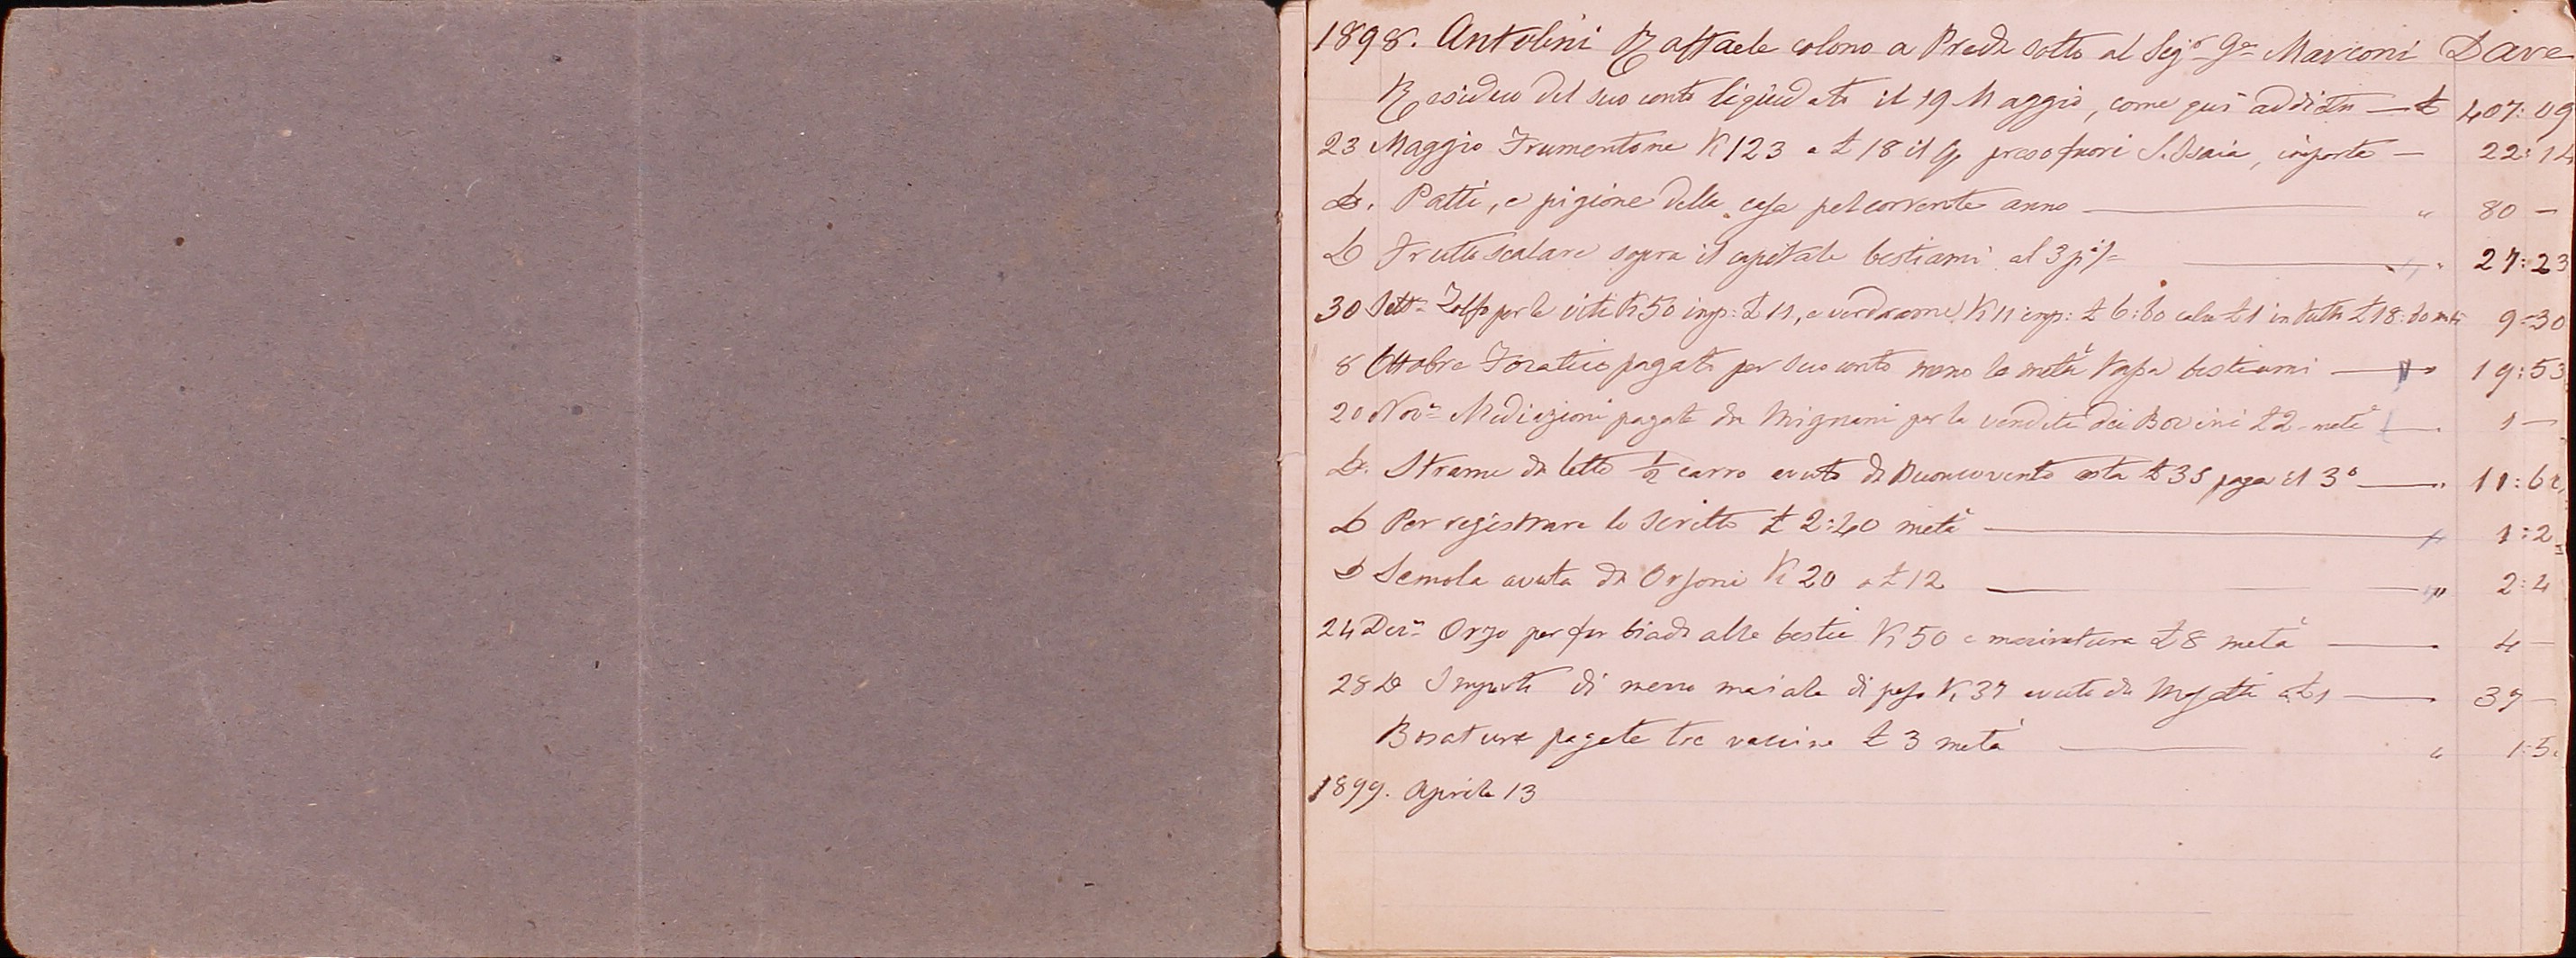 1898. Antolini Raffaele colono a Preda sotto al Sigr. Ge. Marconi Dare
Residuo del suo conto liquidato il 19 Maggio, come qui addietro — £ 407:09
23 Maggio Frumentone K 123 a £ 18 il Q. preso fuori S. Isaia, importa — 22:14
Do. Patti, e pigione della casa pel corrente anno — " 80 —
Do Frutto scalare sopra il capitale bestiami al 3 p% — " 27:23
30 Sett. Zolfo per le viti K 50 imp: £ 11, e verderame K 11 imp: £ 6:60 calce £ 1 in tutto £ 18:60 metà 9:30
8 Ottobre Foratico pagato per suo conto meno la metà tassa bestiami — " 19:53
20 Nov. Mediazioni pagate da Mignani per la vendita dei Bovini £ 2 metà — 1 —
Do. Strame da letto ½ carro avuto da Buoncovento costa £ 35 paga il 3° — " 11:6
Do Per registrare lo scritto £ 2:40 metà — " 1:2
Do Semola avuta da Orsoni K 20 a £ 12 — " 2:4
24 Dec. Orzo per far biada alle bestie K 50 e macinatura £ 8 metà — 4 —
28 Do Importo di mezzo maiale di peso K. 37 avuto da a £ 1 — 37 —
pagate tre vaccine £ 3 metà — " 1:5
1899. Aprile 13